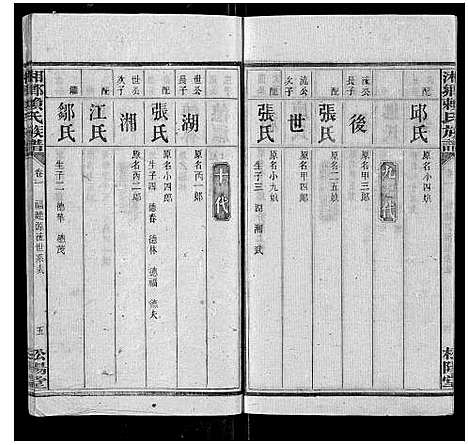 湘鄉賴氏族譜
松陽堂
配
邱氏
原名小四娘
九代
流公
長子
後
原名甲三郎
配
張氏
原名二五娘
流公
次子
世
原名甲四郎
配
張氏
原名小九娘
生子三 湖 湘 武
十代
世公
長子
湖
原名丙一郎
配
張氏
原名小四郎
生子四 德春 德林 德福 德夫
世公
次子
湘
原名丙二郎
配
江氏
繼
鄒氏
生子二 德華 德茂
湘鄉賴氏族譜
卷一
福建源流世系表
五
松陽堂